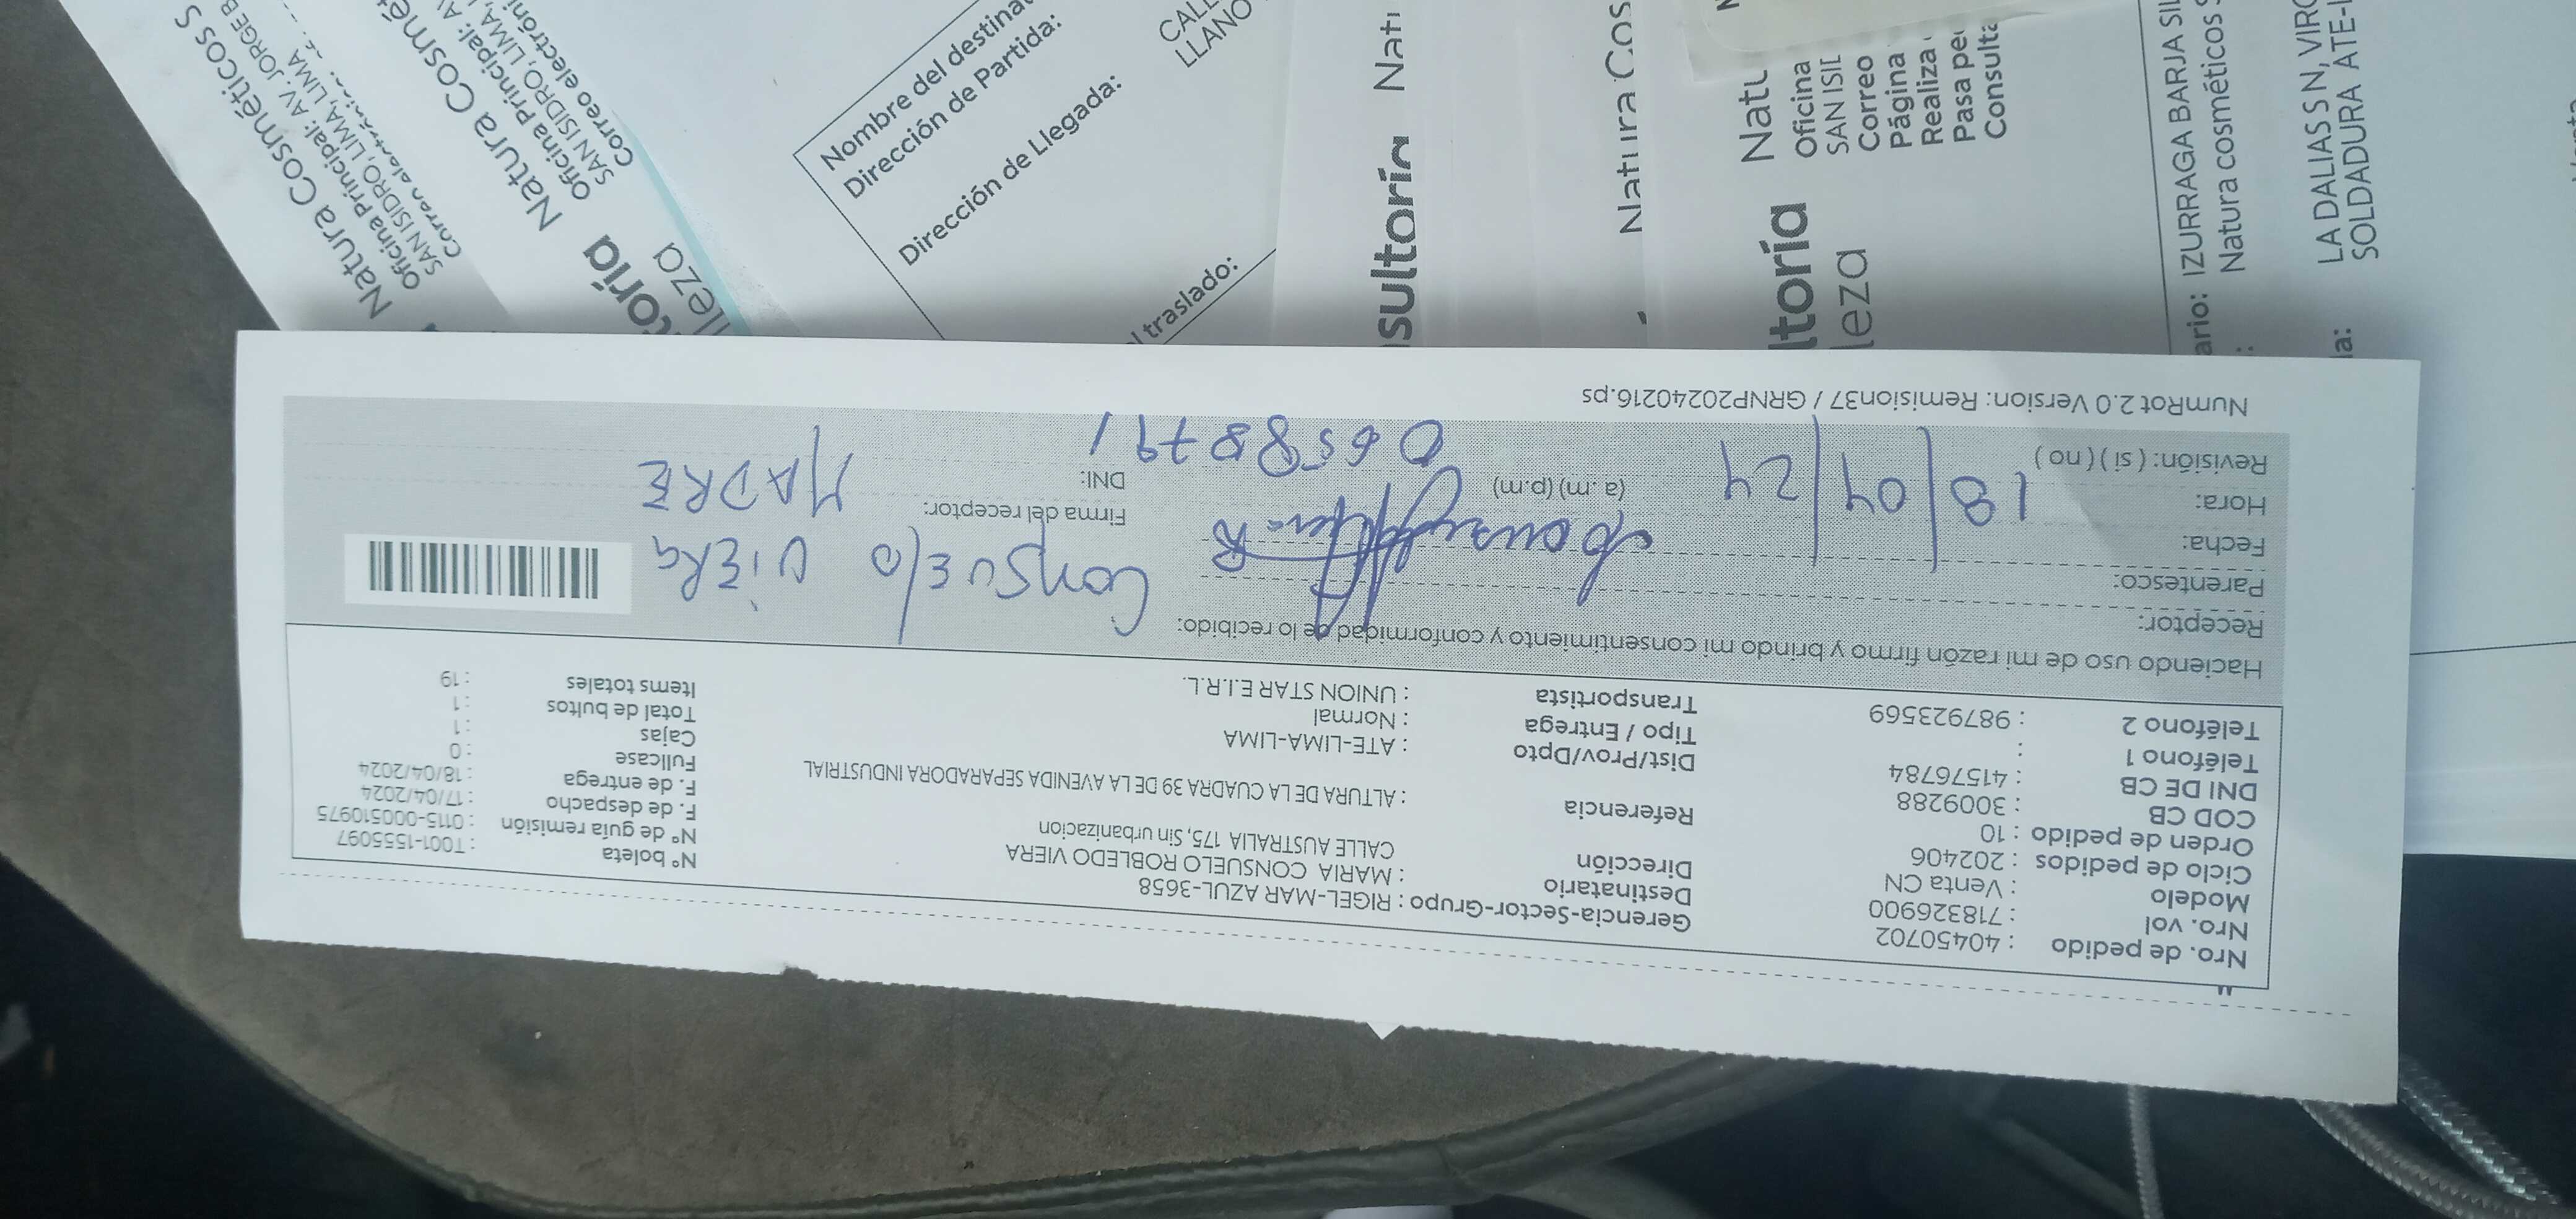 Nro. de pedido : 40450702
Nro. vol : 718326900
Modelo : Venta CN
Ciclo de pedidos : 202406
Orden de pedido : 10
COD CB : 3009288
DNI DE CB : 41576784
Teléfono 1 :
Teléfono 2 : 987923569
Gerencia-Sector-Grupo : RIGEL-MAR AZUL-3658
Destinatario : MARIA CONSUELO ROBLEDO VIERA
Dirección CALLE AUSTRALIA 175, Sin urbanizacion
Referencia : ALTURA DE LA CUADRA 39 DE LA AVENIDA SEPARADORA INDUSTRIAL
Dist/Prov/Dpto : ATE-LIMA-LIMA
Tipo / Entrega : Normal
Transportista : UNION STAR E.I.R.L.
N° boleta : T001-1555097
N° de guía remisión : 0115-000510975
F. de despacho : 17/04/2024
F. de entrega : 18/04/2024
Fullcase : 0
Cajas : 1
Total de bultos : 1
Items totales : 19
Haciendo uso de mi razón firmo y brindo mi consentimiento y conformidad de lo recibido:
Receptor:
Parentesco:
Fecha:
Hora: (a. m) (p.m)
Revisión: ( si ) ( no )
18/04/24
Consuelo VIERA
Firma del receptor:
MADRE
DNI:
NumRot 2.0 Version: Remision37 / GRNP20240216.ps
Natura Cosméticos S
Oficina Principal: AV. JORGE B
SAN ISIDRO, LIMA, LIMA
Natura Cosmé
Oficina Principal: AV
SAN ISIDRO, LIMA,
Correo electróni
toría
leza
Nombre del destina
Dirección de Partida:
Dirección de Llegada:
CALL
LLANO
l traslado:
sultoría Natu
Natura Cos
ltoría Natu
leza
Oficina
SAN ISID
Correo
Página
Realiza
Pasa pe
Consulta
ario: IZURRAGA BARJA SIL
: Natura cosméticos S
LA DALIAS S N, VIRG
la: SOLDADURA ATE-L